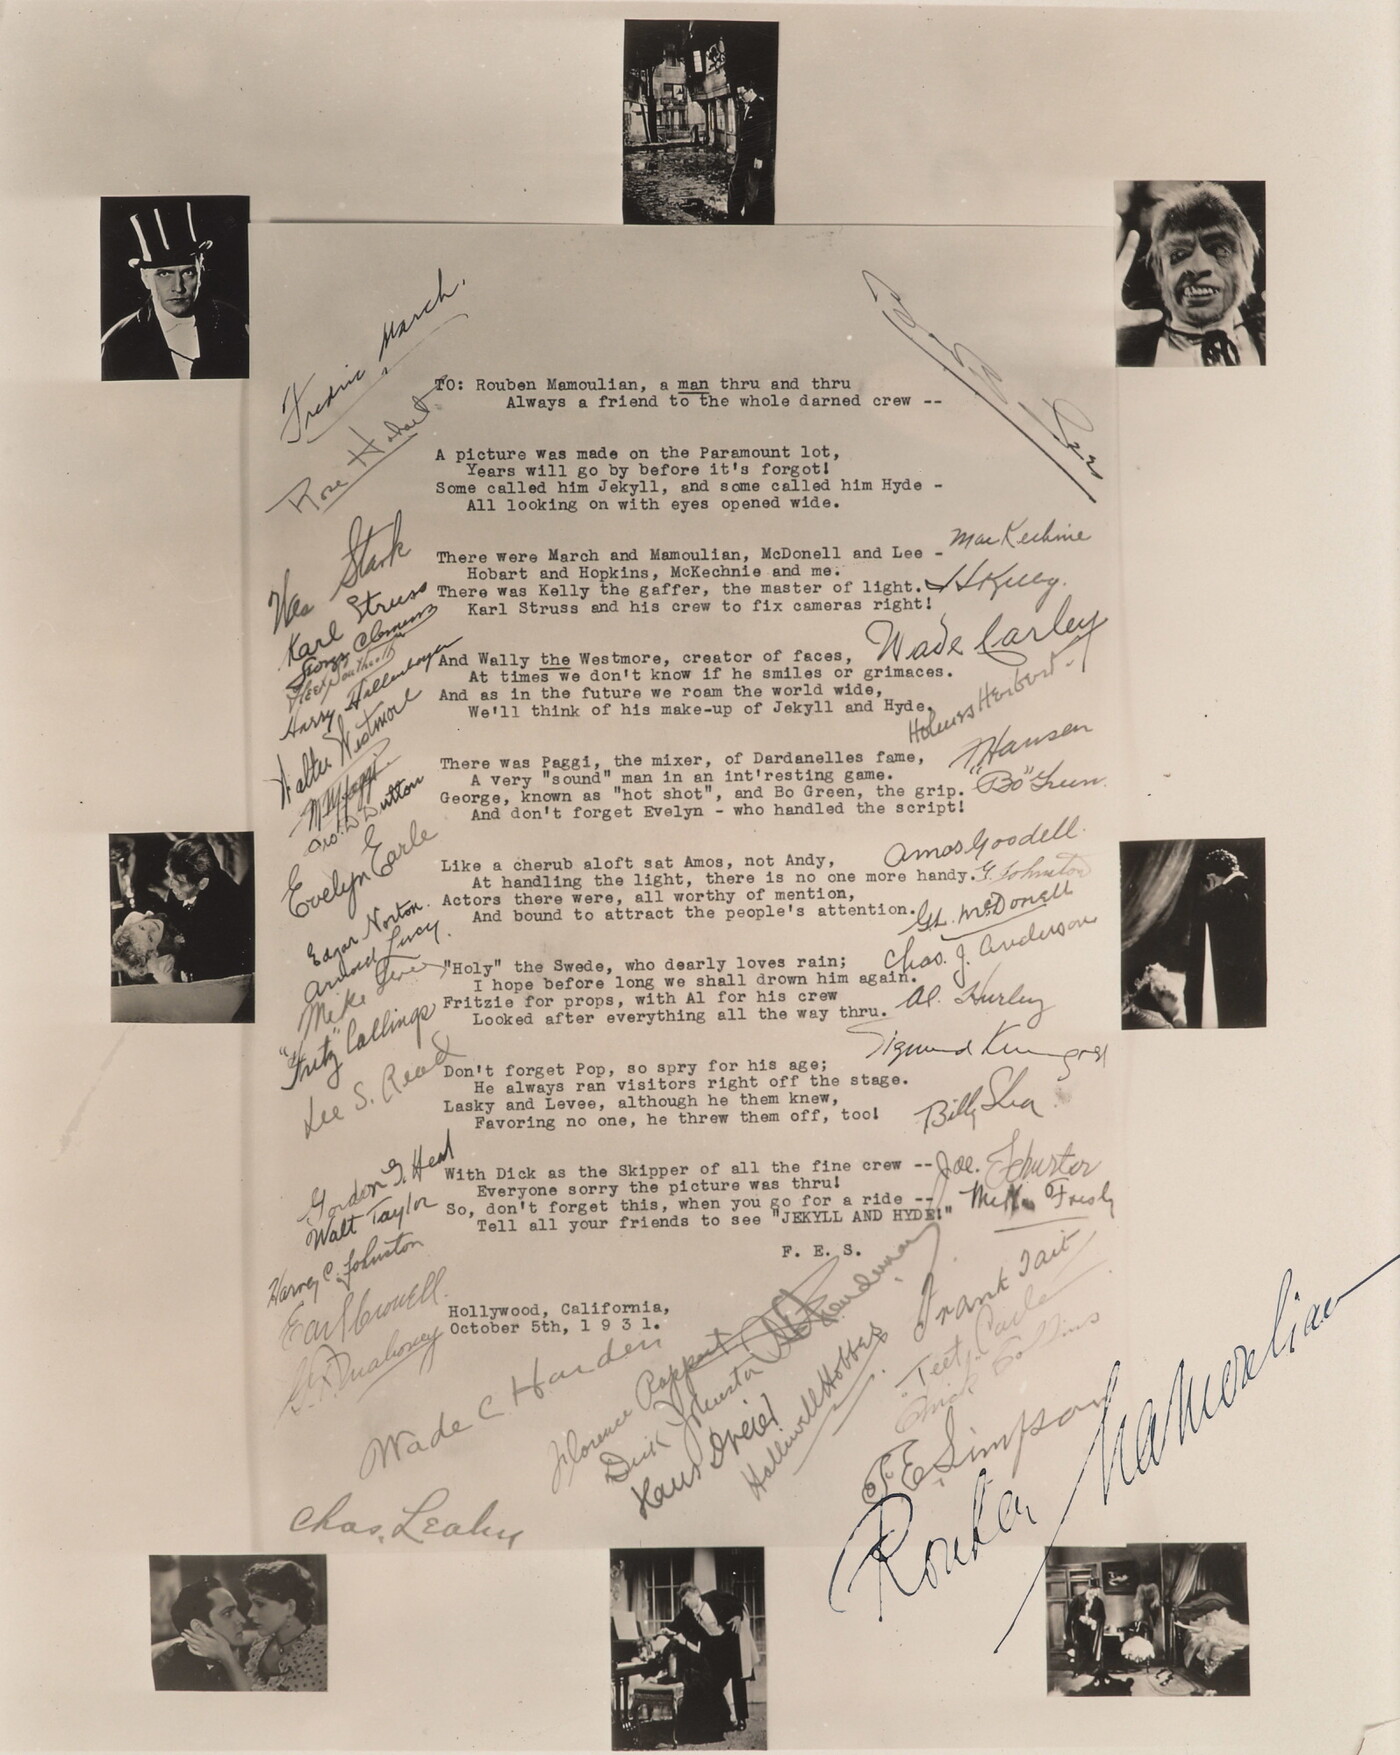 Fredric March.
Rose Hobart
TO: Rouben Mamoulian, a man thru and thru
Always a friend to the whole darned crew --
A picture was made on the Paramount lot,
Years will go by before it's forgot!
Some called him Jekyll, and some called him Hyde -
All looking on with eyes opened wide.
There were March and Mamoulian, McDonell and Lee -
Hobart and Hopkins, McKechnie and me.
There was Kelly the gaffer, the master of light.
Karl Struss and his crew to fix cameras right!
And Wally the Westmore, creator of faces,
At times we don't know if he smiles or grimaces.
And as in the future we roam the world wide,
We'll think of his make-up of Jekyll and Hyde.
There was Paggi, the mixer, of Dardanelles fame,
A very "sound" man in an int'resting game.
George, known as "hot shot", and Bo Green, the grip.
And don't forget Evelyn - who handled the script!
Like a cherub aloft sat Amos, not Andy,
At handling the light, there is no one more handy.
Actors there were, all worthy of mention,
And bound to attract the people's attention.
"Holy" the Swede, who dearly loves rain;
I hope before long we shall drown him again.
Fritzie for props, with Al for his crew
Looked after everything all the way thru.
Don't forget Pop, so spry for his age;
He always ran visitors right off the stage.
Lasky and Levee, although he them knew,
Favoring no one, he threw them off, too!
With Dick as the Skipper of all the fine crew --
Everyone sorry the picture was thru!
So, don't forget this, when you go for a ride --
Tell all your friends to see "JEKYLL AND HYDE!"
F. E. S.
Hollywood, California,
October 5th, 1 9 3 1.
Stark
Karl Struss
George Clemens
Harry Hallenberger
Walter Westmore
M M Paggi
Geo. D Dutton
Evelyn Earle
Edgar Norton.
Arnold Lucy.
Mike
"Fritz" Collings
Lee S. Read
Gordon G. Head
Walt Taylor
Harvey C. Johnston
Earl Crowell.
Mahoney
MacKechnie
Wade Carley
Holmes Herbert
Hansen
"Bo" Green.
Amos Goodell.
G. Johnston
McDonell
Chas. J. Anderson
Al. Hurley
Sigmund
Billy Shea
Joe. Schurtor
Wade C Harden
Chas. Leahy
Florence Rappart
Dick Johnston
Hans Dreier
Halliwell Hobbes
Frank Tait
"Teet" Carle
Collins
F E Simpson
Rouben Mamoulian